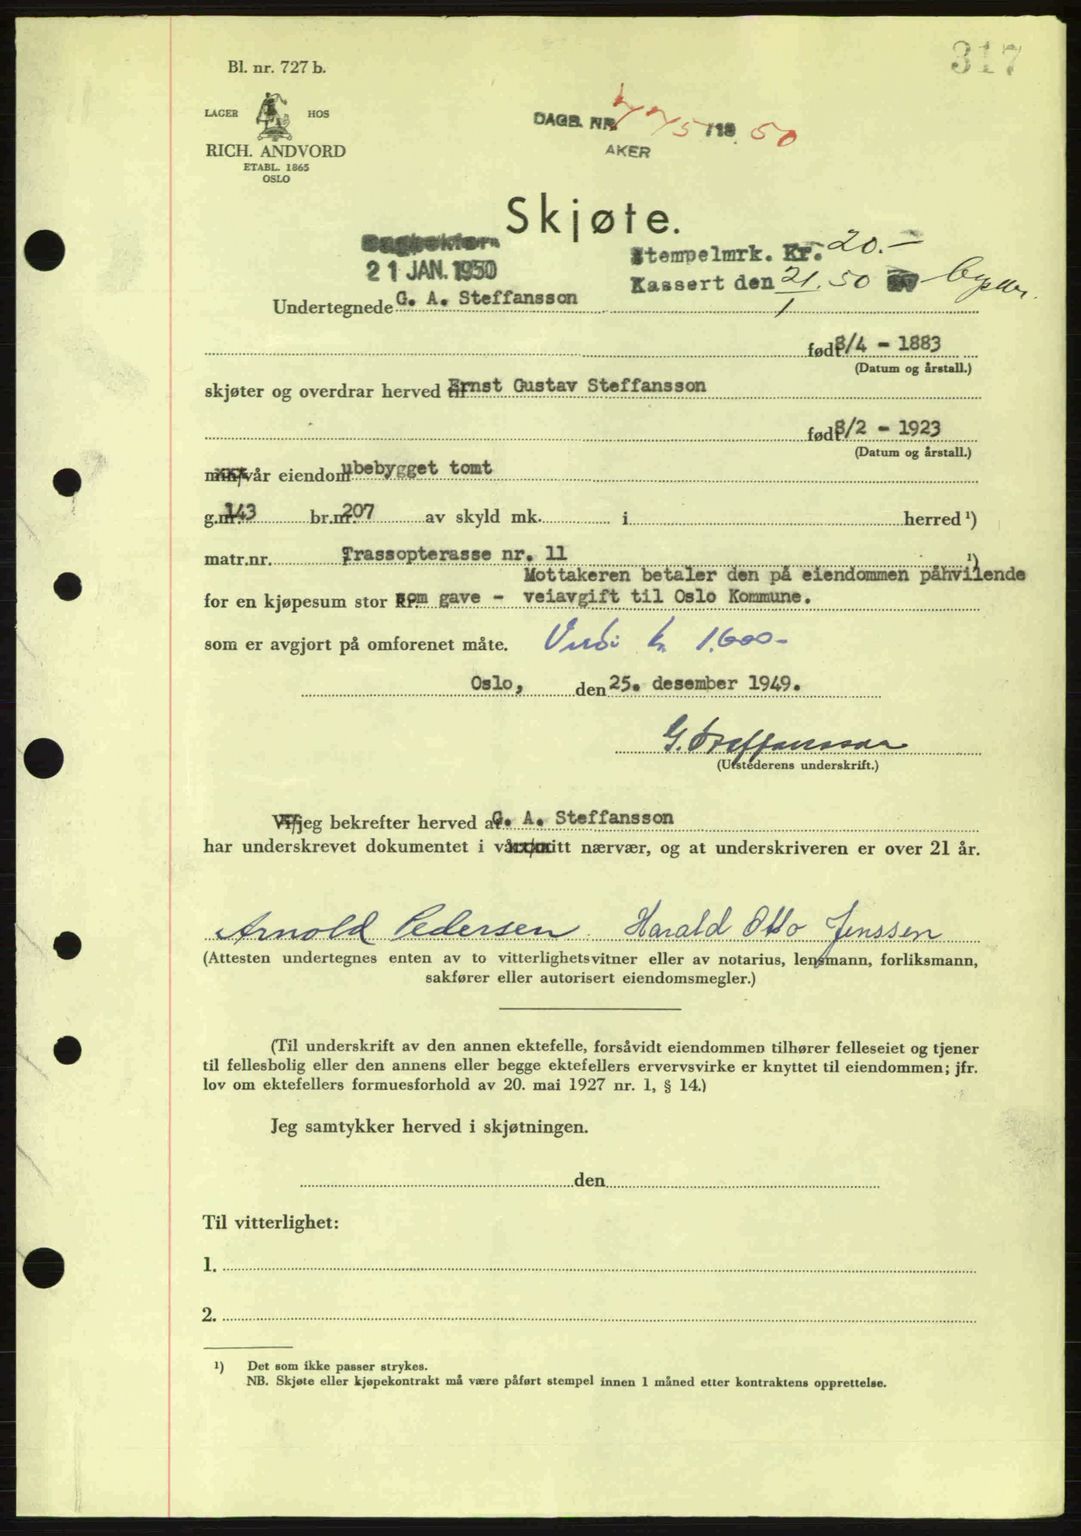 317
Bl. nr. 727 b.
LAGER HOS
RICH. ANDVORD
ETABL. 1865
OSLO
DAGB. NR. 775/19 50
AKER
Skjøte.
21 JAN. 1950
Stempelmrk. Kr. 20.-
Kassert den 21/1. 50
Undertegnede G. A. Steffansson
født 8/4 - 1883
(Datum og årstall.)
skjøter og overdrar herved til Ernst Gustav Steffansson
født 8/2 - 1923
(Datum og årstall.)
min/vår eiendom ubebygget tomt
g.nr. 143 br.nr. 207 av skyld mk. i herred ¹)
matr.nr. Trassopterasse nr. 11 ¹)
Mottakeren betaler den på eiendommen påhvilende
for en kjøpesum stor kr. som gave - veiavgift til Oslo Kommune.
som er avgjort på omforenet måte. Verdi kr 1.600-
Oslo, den 25. desember 1949.
G. Steffansson
(Utstederens underskrift.)
Vi/jeg bekrefter herved at G. A. Steffansson
har underskrevet dokumentet i vårt/mitt nærvær, og at underskriveren er over 21 år.
Arnold Pedersen. Harald Otto Jenssen
(Attesten undertegnes enten av to vitterlighetsvitner eller av notarius, lensmann, forliksmann,
sakfører eller autorisert eiendomsmegler.)
(Til underskrift av den annen ektefelle, forsåvidt eiendommen tilhører felleseiet og tjener
til fellesbolig eller den annens eller begge ektefellers ervervsvirke er knyttet til eiendommen; jfr.
lov om ektefellers formuesforhold av 20. mai 1927 nr. 1, § 14.)
Jeg samtykker herved i skjøtningen.
den
Til vitterlighet:
1.
2.
¹) Det som ikke passer strykes.
NB. Skjøte eller kjøpekontrakt må være påført stempel innen 1 måned etter kontraktens opprettelse.